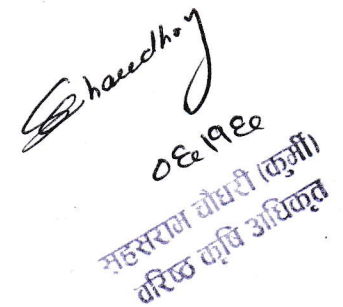 Chaudhary
सहसराम चौधरी (कुर्मी)
वरिष्ठ कृषि अधिकृत